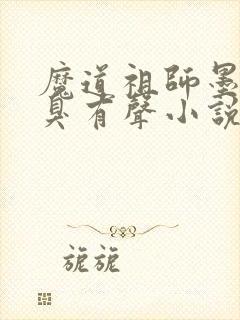 魔道祖師墨
臭有聲小説
旎旎